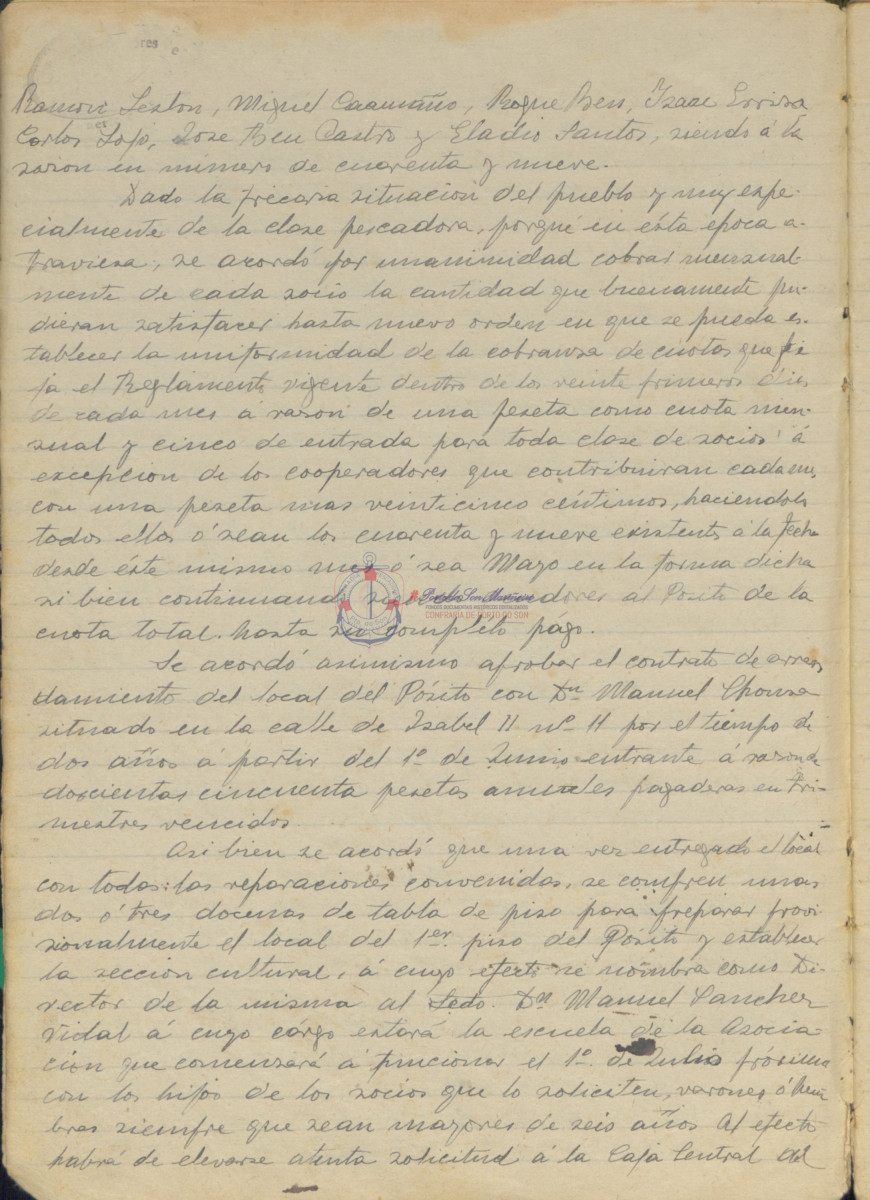 Ramon Sexton, Miguel Caamaño, Roque Ben, Isaac
Carlos Sojo, Jose Ben Castro y Eladio Santos, siendo á la
sazon en número de cuarenta y nueve.
Dado la precaria situacion del pueblo y muy espe-
cialmente de la clase pescadora, porqué en ésta epoca a-
traviesa, se acordó por unanimidad cobrar mensual-
mente de cada socio la cantidad que buenamente pu-
dieran satisfacer hasta nuevo orden en que se pueda es-
tablecer la uniformidad de la cobranza de cuotas que fi
ja el Reglamento vigente dentro de los veinte primeros dias
de cada mes á razon de una peseta como cuota men-
sual y cinco de entrada para toda clase de socios á
excepcion de los cooperadores que contribuiran cada mes
con una peseta mas veinticinco céntimos, haciendolo
todos ellos ó sean los cuarenta y nueve existentes á la fecha
desde éste mismo mes ó sea Mayo en la forma dicha
si bien continuando deudores al Posito de la
cuota total hasta su completo pago.
Se acordó asimismo aprobar el contrato de arren
damiento del local del Pósito con Dn Manuel Chouza
situado en la calle de Isabel II nº 11 por el tiempo de
dos años á partir del 1º de Junio entrante á razon de
doscientas cincuenta pesetas anuales pagaderas en tri-
mestres vencidos
Asi bien se acordó que una vez entregado el local
con todas las reparaciones convenidas, se compren unas
dos ó tres docenas de tabla de piso para preparar provi
sionalmente el local del 1er. piso del Pósito y establecer
la sección cultural, á cuyo efecto se nombra como Di-
rector de la misma al Ledo. Dn Manuel Sanchez
Vidal á cuyo cargo estará la escuela de la Asocia-
ción que comenzará á funcionar el 1º de Julio próximo
con los hijos de los socios que lo soliciten, varones ó hem
bras siempre que sean mayores de seis años Al efecto
habrá de elevarse atenta solicitud á la Caja Central del
CONFRARÍA DE PORTO DO SON